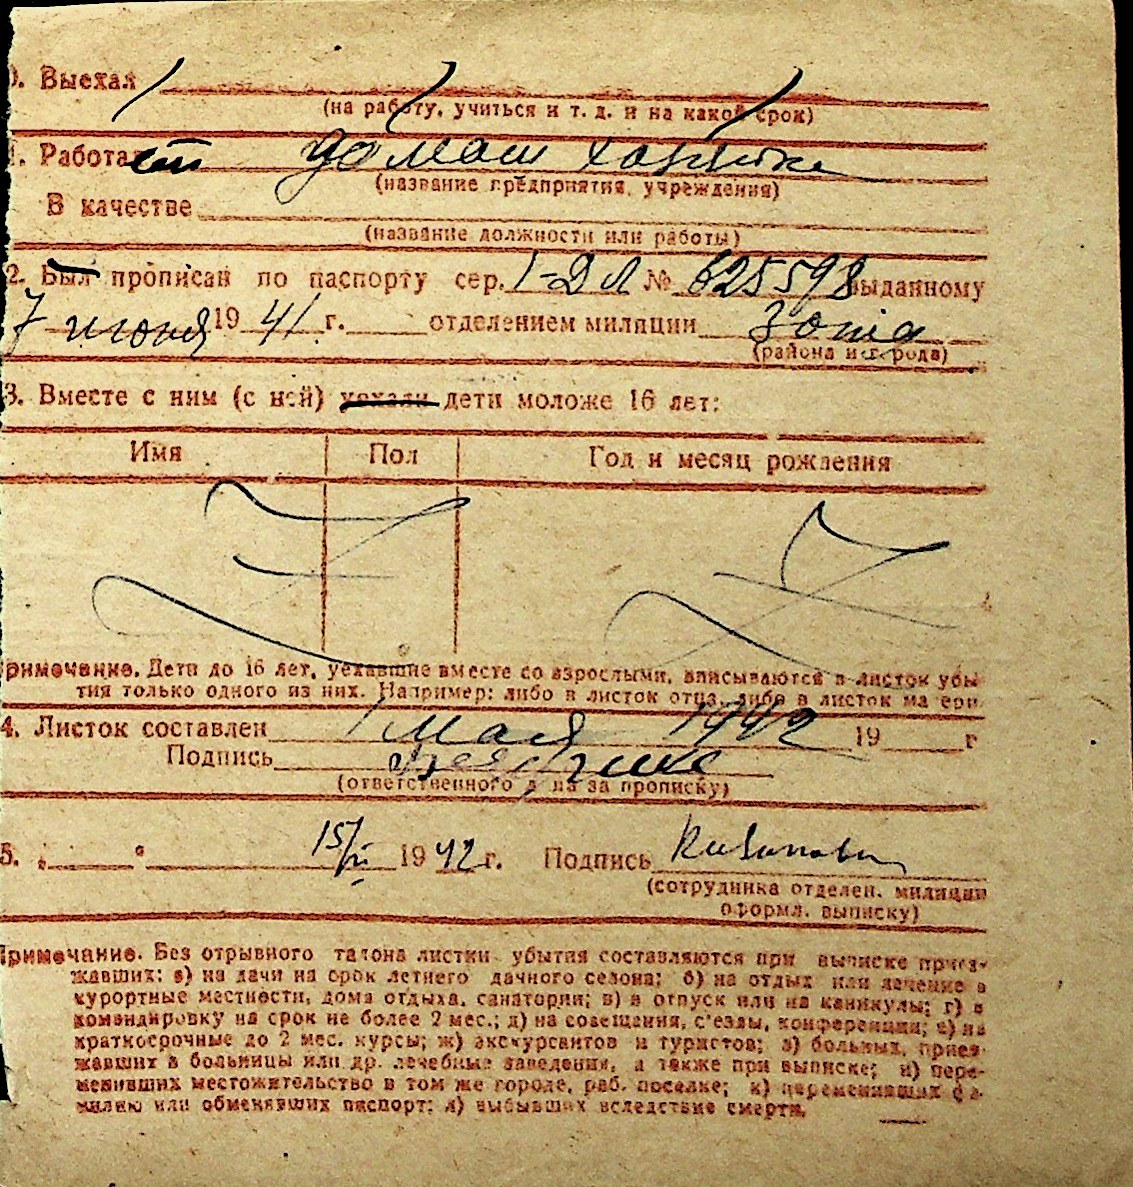 0. Выехал
(на работу, учиться и т. д. и на какой срок)
1. Работает домаш хозяйка
(название предприятия, учреждения)
В качестве
(название должности или работы)
2. Был прописан по паспорту сер. I-ДЛ № 625598 выданному
7 июня 1941 г. отделением милиции
(района и города)
3. Вместе с ним (с ней) уехали дети моложе 16 лет:
Имя Пол Год и месяц рождения
Примечание. Дети до 16 лет, уехавшие вместе со взрослыми, вписываются в листок убы
тия только одного из них. Например: либо в листок отца, либо в листок ма ери.
4. Листок составлен 1 мая 1942 19 г
Подпись
(ответственного л ца за прописку)
5. " " 15/V 1942 г. Подпись
(сотрудника отделен. милиции
оформл. выписку)
Примечание. Без отрывного талона листки убытия составляются при выписке приез-
жавших: а) на дачи на срок летнего дачного сезона; б) на отдых или лечение в
курортные местности, дома отдыха, санатории; в) в отпуск или на каникулы; г) в
командировку на срок не более 2 мес.; д) на совещания, с'езды, конференции; е) на
краткосрочные до 2 мес. курсы; ж) экскурсантов и туристов; з) больных, приез-
жавших в больницы или др. лечебные заведения, а также при выписке; и) пере-
менивших местожительство в том же городе, раб. поселке; к) переменивших фа-
милию или обменявших паспорт; л) выбывших вследствие смерти.